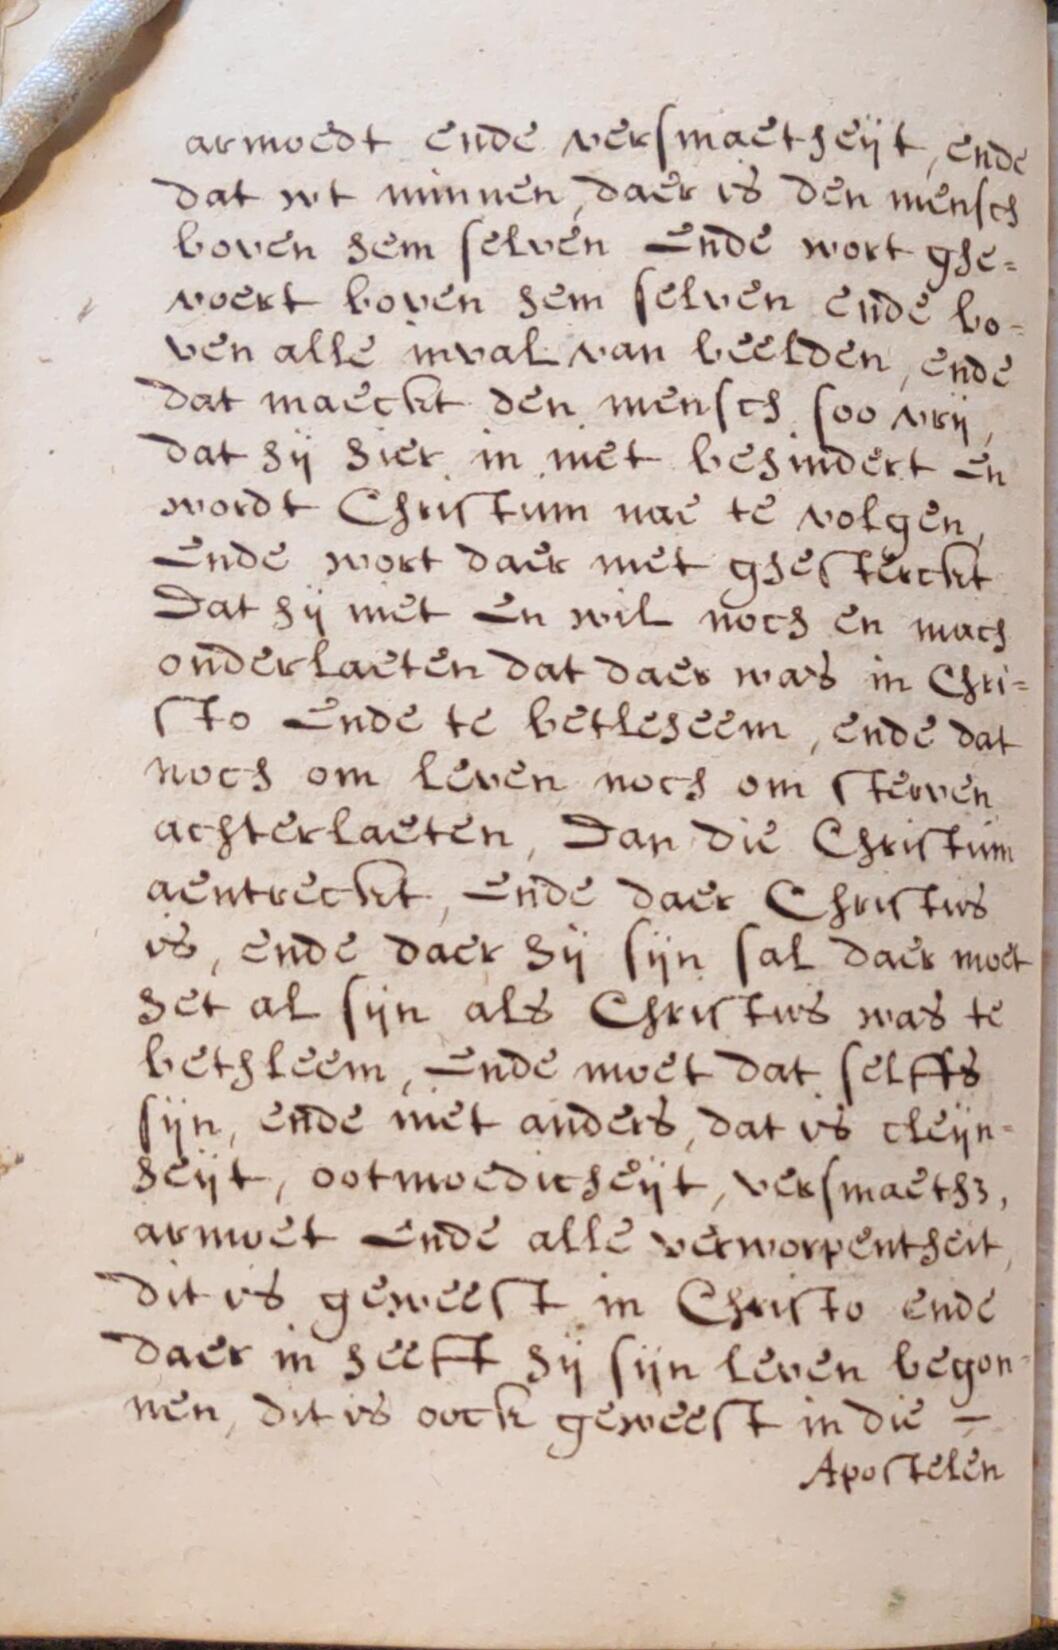 armoedt ende versmaetheÿt, ende
dat wt minnen, daer is den mensch
boven hem selven Ende wort ghe=
voert boven hem selven ende bo-
ven alle inval van beelden, ende
dat maeckt den mensch soo vrÿ,
dat hÿ hier in niet behindert En
wordt Christum nae te volgen,
Ende wort daer met ghesterckt
Dat hÿ niet En wil noch en mach
onderlaeten dat daer was in Chri=
sto Ende te betleheem, ende dat
noch om leven noch om sterven
achterlaeten, Dan die Christum
aentreckt, Ende daer Christus
is, ende daer hÿ sÿn sal daer moet
het al sÿn als Christus was te
bethleem, Ende moet dat selffs
sÿn, ende niet anders, dat is cleÿn-
heÿt, ootmoedicheÿt, versmaeth3,
armoet Ende alle verworpentheit,
dit is geweest in Christo ende
daer in heeft hÿ sÿn leven begon-
nen, dit is oock geweest in die –
Apostelen